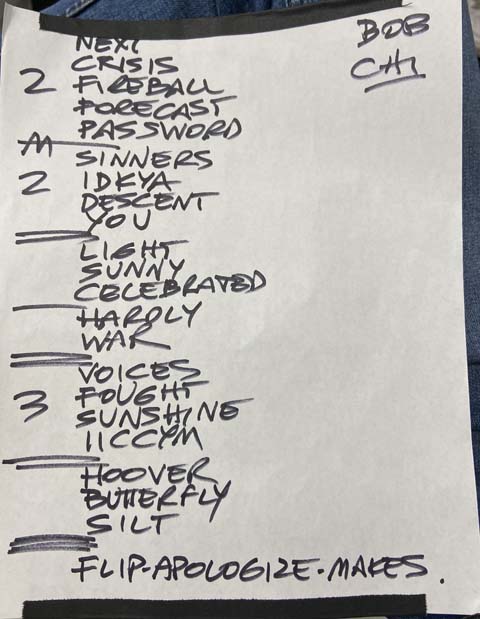 BOB
CHI
NEXT
CRISIS
2 FIREBALL
FORECAST
PASSWORD
M
SINNERS
2 IDKYA
DESCENT
YOU
LIGHT
SUNNY
CELEBRATED
HARDLY
WAR
VOICES
3 FOUGHT
SUNSHINE
IICCYM
HOOVER
BUTTERFLY
SILT
FLIP-APOLOGIZE-MAKES.